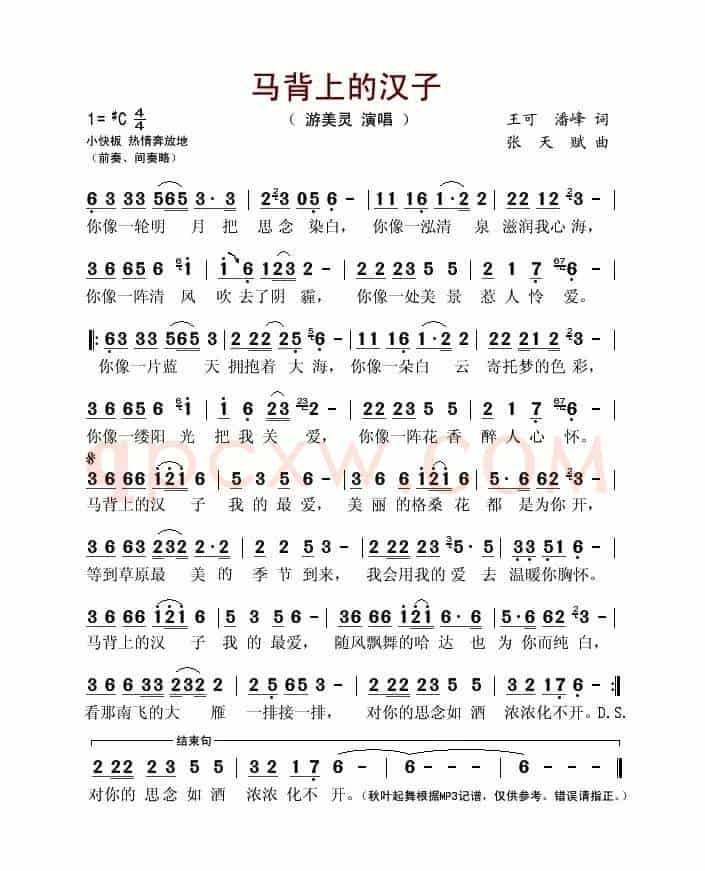 马背上的汉子
1=#C 4/4
（ 游美灵 演唱 ）
王可 潘峰 词
小快板 热情奔放地
张 天 赋 曲
（前奏、间奏略）
6 3 33 565 3· 3 | 2 23 05 6 - | 11 16 1·2 2 | 22 12 2 3 - |
你像一轮明 月 把 思念 染白， 你像一泓清 泉 滋润我心海，
3 6 65 6 6 1 - | 1 6 123 2 - | 22 23 5 5 | 2 1 7 67 6 - |
你像一阵清 风 吹 去了阴 霾， 你像一处美 景 惹 人 怜 爱。
‖: 63 33 565 3 | 2 22 25 5 6 - | 11 16 1·2 2 | 22 21 2 3 - |
你像一片蓝 天 拥抱着 大 海， 你像一朵白 云 寄托梦的色 彩，
3 6 65 6 6 1 - | 1 6 23 23 3 - | 22 23 5 5 | 2 1 7 67 6 - |
你像一缕阳 光 把 我 关 爱， 你像一阵花 香 醉 人 心 怀。
3 6 66 121 6 | 5 3 5 6 - | 3 6 66 121 6 | 5· 6 62 2 3 - |
马背上的汉 子 我 的 最 爱， 美 丽 的 格桑 花 都 是为你 开，
3 6 63 232 2·2 | 2 2 35 3 - | 33 22 23 3 5· 5 | 33 51 6 - |
等到草原最 美 的 季 节 到来， 我会用我的 爱 去 温暖你胸怀。
3 6 66 121 6 | 5 3 35 6 - | 36 66 121 6·6 | 5 6 62 3 - |
马背上的汉 子 我 的 最爱， 随风飘舞的哈 达 也 为 你而纯 白，
3 6 6 33 232 | 2 5 65 3 - | 22 22 23 5 5 | 32 17 6 - :‖
看那南飞的大 雁 一排接一排， 对你的思念如 酒 浓浓化不开。D.S.
结束句
2 22 23 5 5 | 32 17 6 - | 6 - - - | 6 - - - ‖
对你的 思念 如酒 浓浓 化不 开。（秋叶起舞根据MP3记谱，仅供参考。错误请指正。）
qpcxw.COM